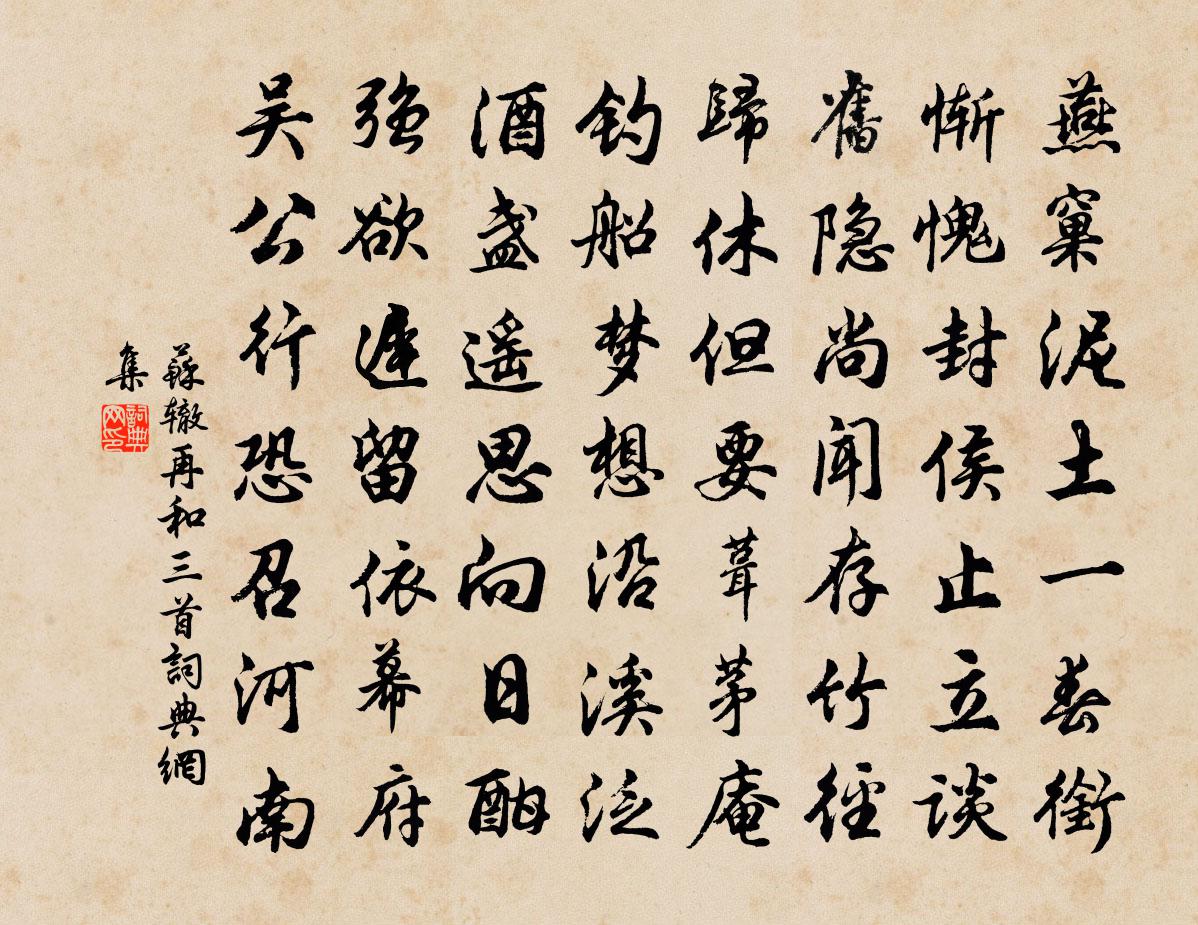 燕窠泥土一春銜
慚愧封侯止立谈
舊隐尚闻存竹径
歸休但要葺茅庵
钓船梦想沿溪泛
酒盏遥思向日酣
强欲遲留依幕府
吴公行恐召河南
蘇辙再和三首詞典網
集
詞典网印